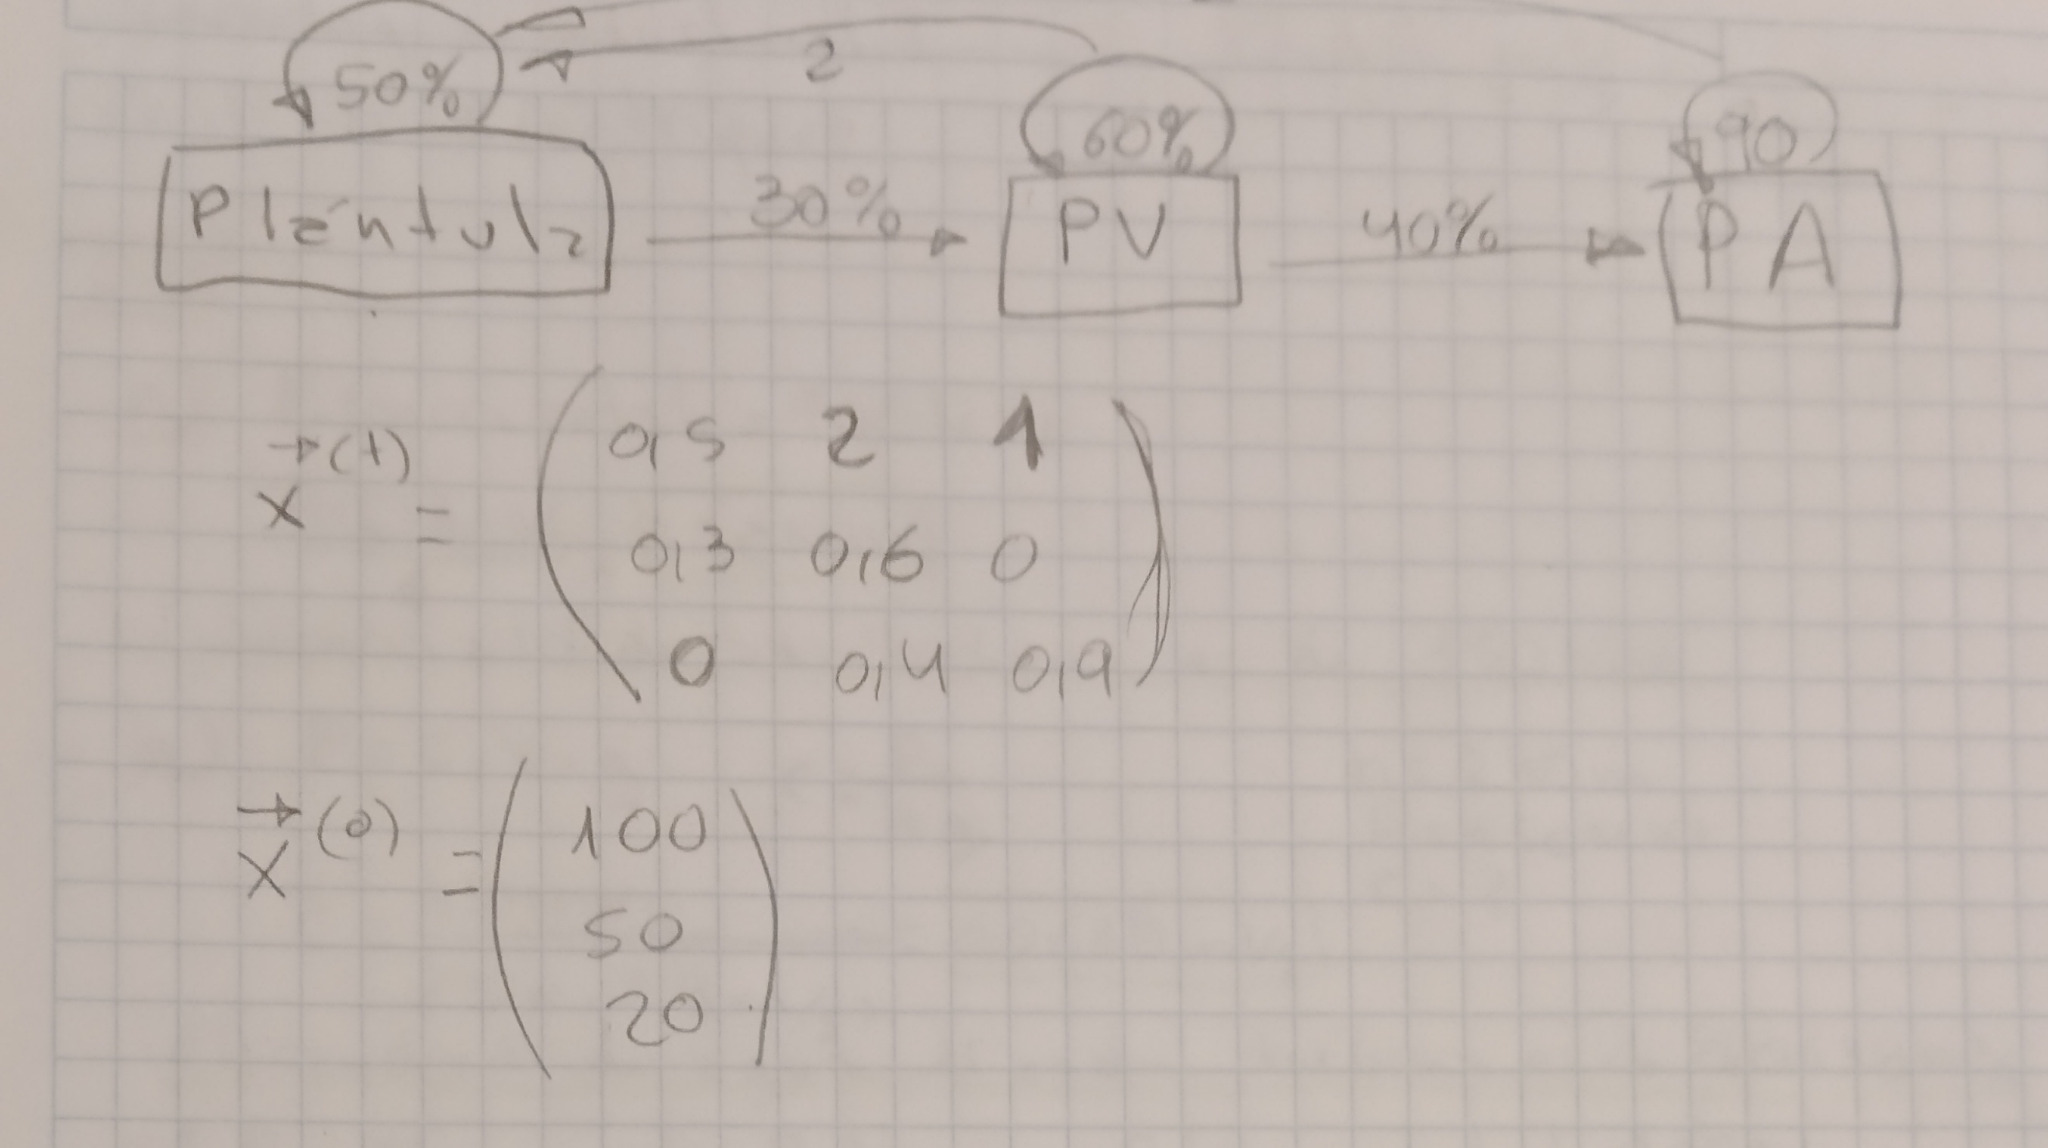 2
50% 60% 90
Plántula 30% PV 40% PA
x⃗(t) = ( 0,5 2 1
0,3 0,6 0
0 0,4 0,9 )
x⃗(0) = ( 100
50
20 )